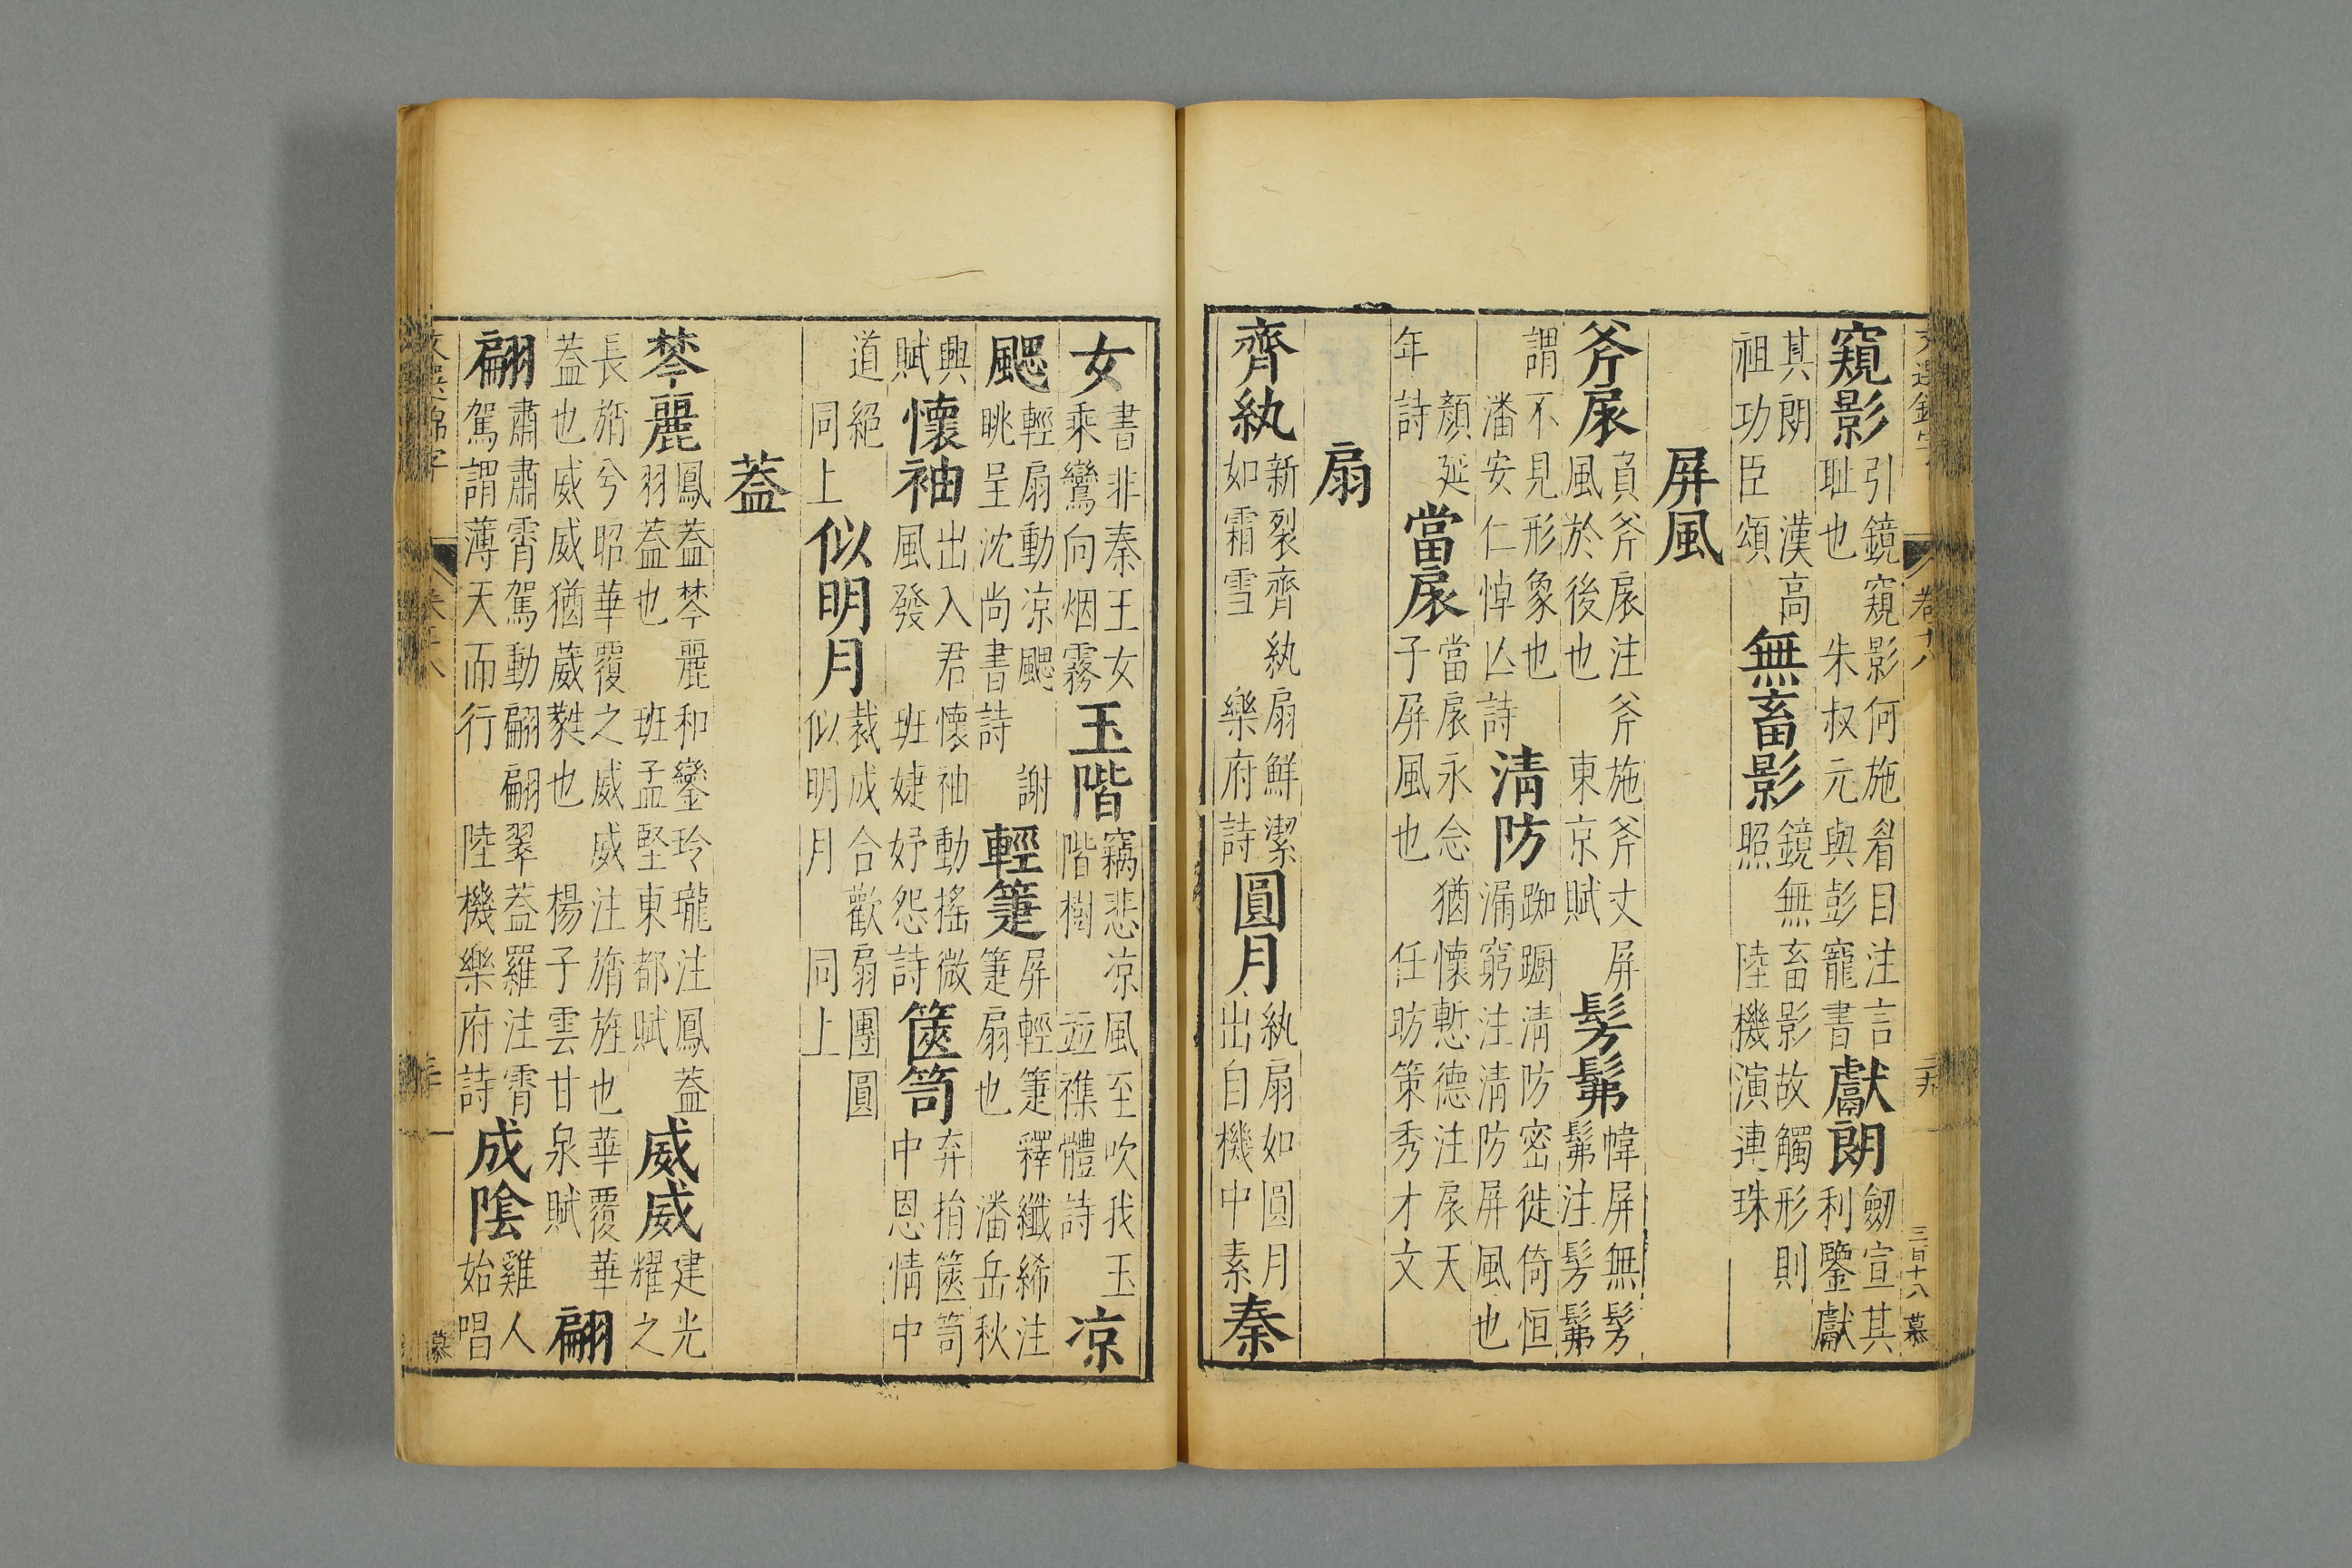 文選錦字 卷十八 二十九 三百十八 慕
窺影 引鏡窺影何施眉目注言耻也 朱叔元與彭寵書 獻朗 劒宣其利鑒獻
其朗 漢高祖功臣頌 無畜影 鏡無畜影故觸形則照 陸機演連珠
屏風
斧扆 負斧扆注斧施斧丈屏風於後也 東京賦 髣髴 幃屏無髣髴注髣髴
謂不見形象也 潘安仁悼亾詩 淸防 踟蹰淸防密徙倚恒漏窮注淸防屏風也
顏延年詩 當扆 當扆永念猶懷慙德注扆天子屏風也 任昉策秀才文
扇
齊紈 新裂齊紈扇鮮潔如霜雪 樂府詩 圓月 紈扇如圓月出自機中素 秦
女 書非秦王女乘鸞向烟霧 玉階 竊悲凉風至吹我玉階樹 並襍體詩 凉
颸 輕扇動凉颸 謝眺呈沈尚書詩 輕箑 屏輕箑釋纖絺注箑扇也 潘岳秋
興賦 懷袖 出入君懷袖動搖微風發 班婕妤怨詩 篋笥 弃捐篋笥中恩情中
道絕 同上 似明月 裁成合歡扇團圓似明月 同上
葢
棽麗 鳳葢棽麗和鑾玲瓏注鳳葢羽葢也 班孟堅東都賦 威威 建光耀之
長旓兮昭華覆之威威注旓旌也華覆華葢也威威猶葳蕤也 楊子雲甘泉賦 翩
翩 肅肅霄駕動翩翩翠葢羅注霄駕謂薄天而行 陸機樂府詩 成陰 雞人始唱
文選錦字 卷十八 三十 慕